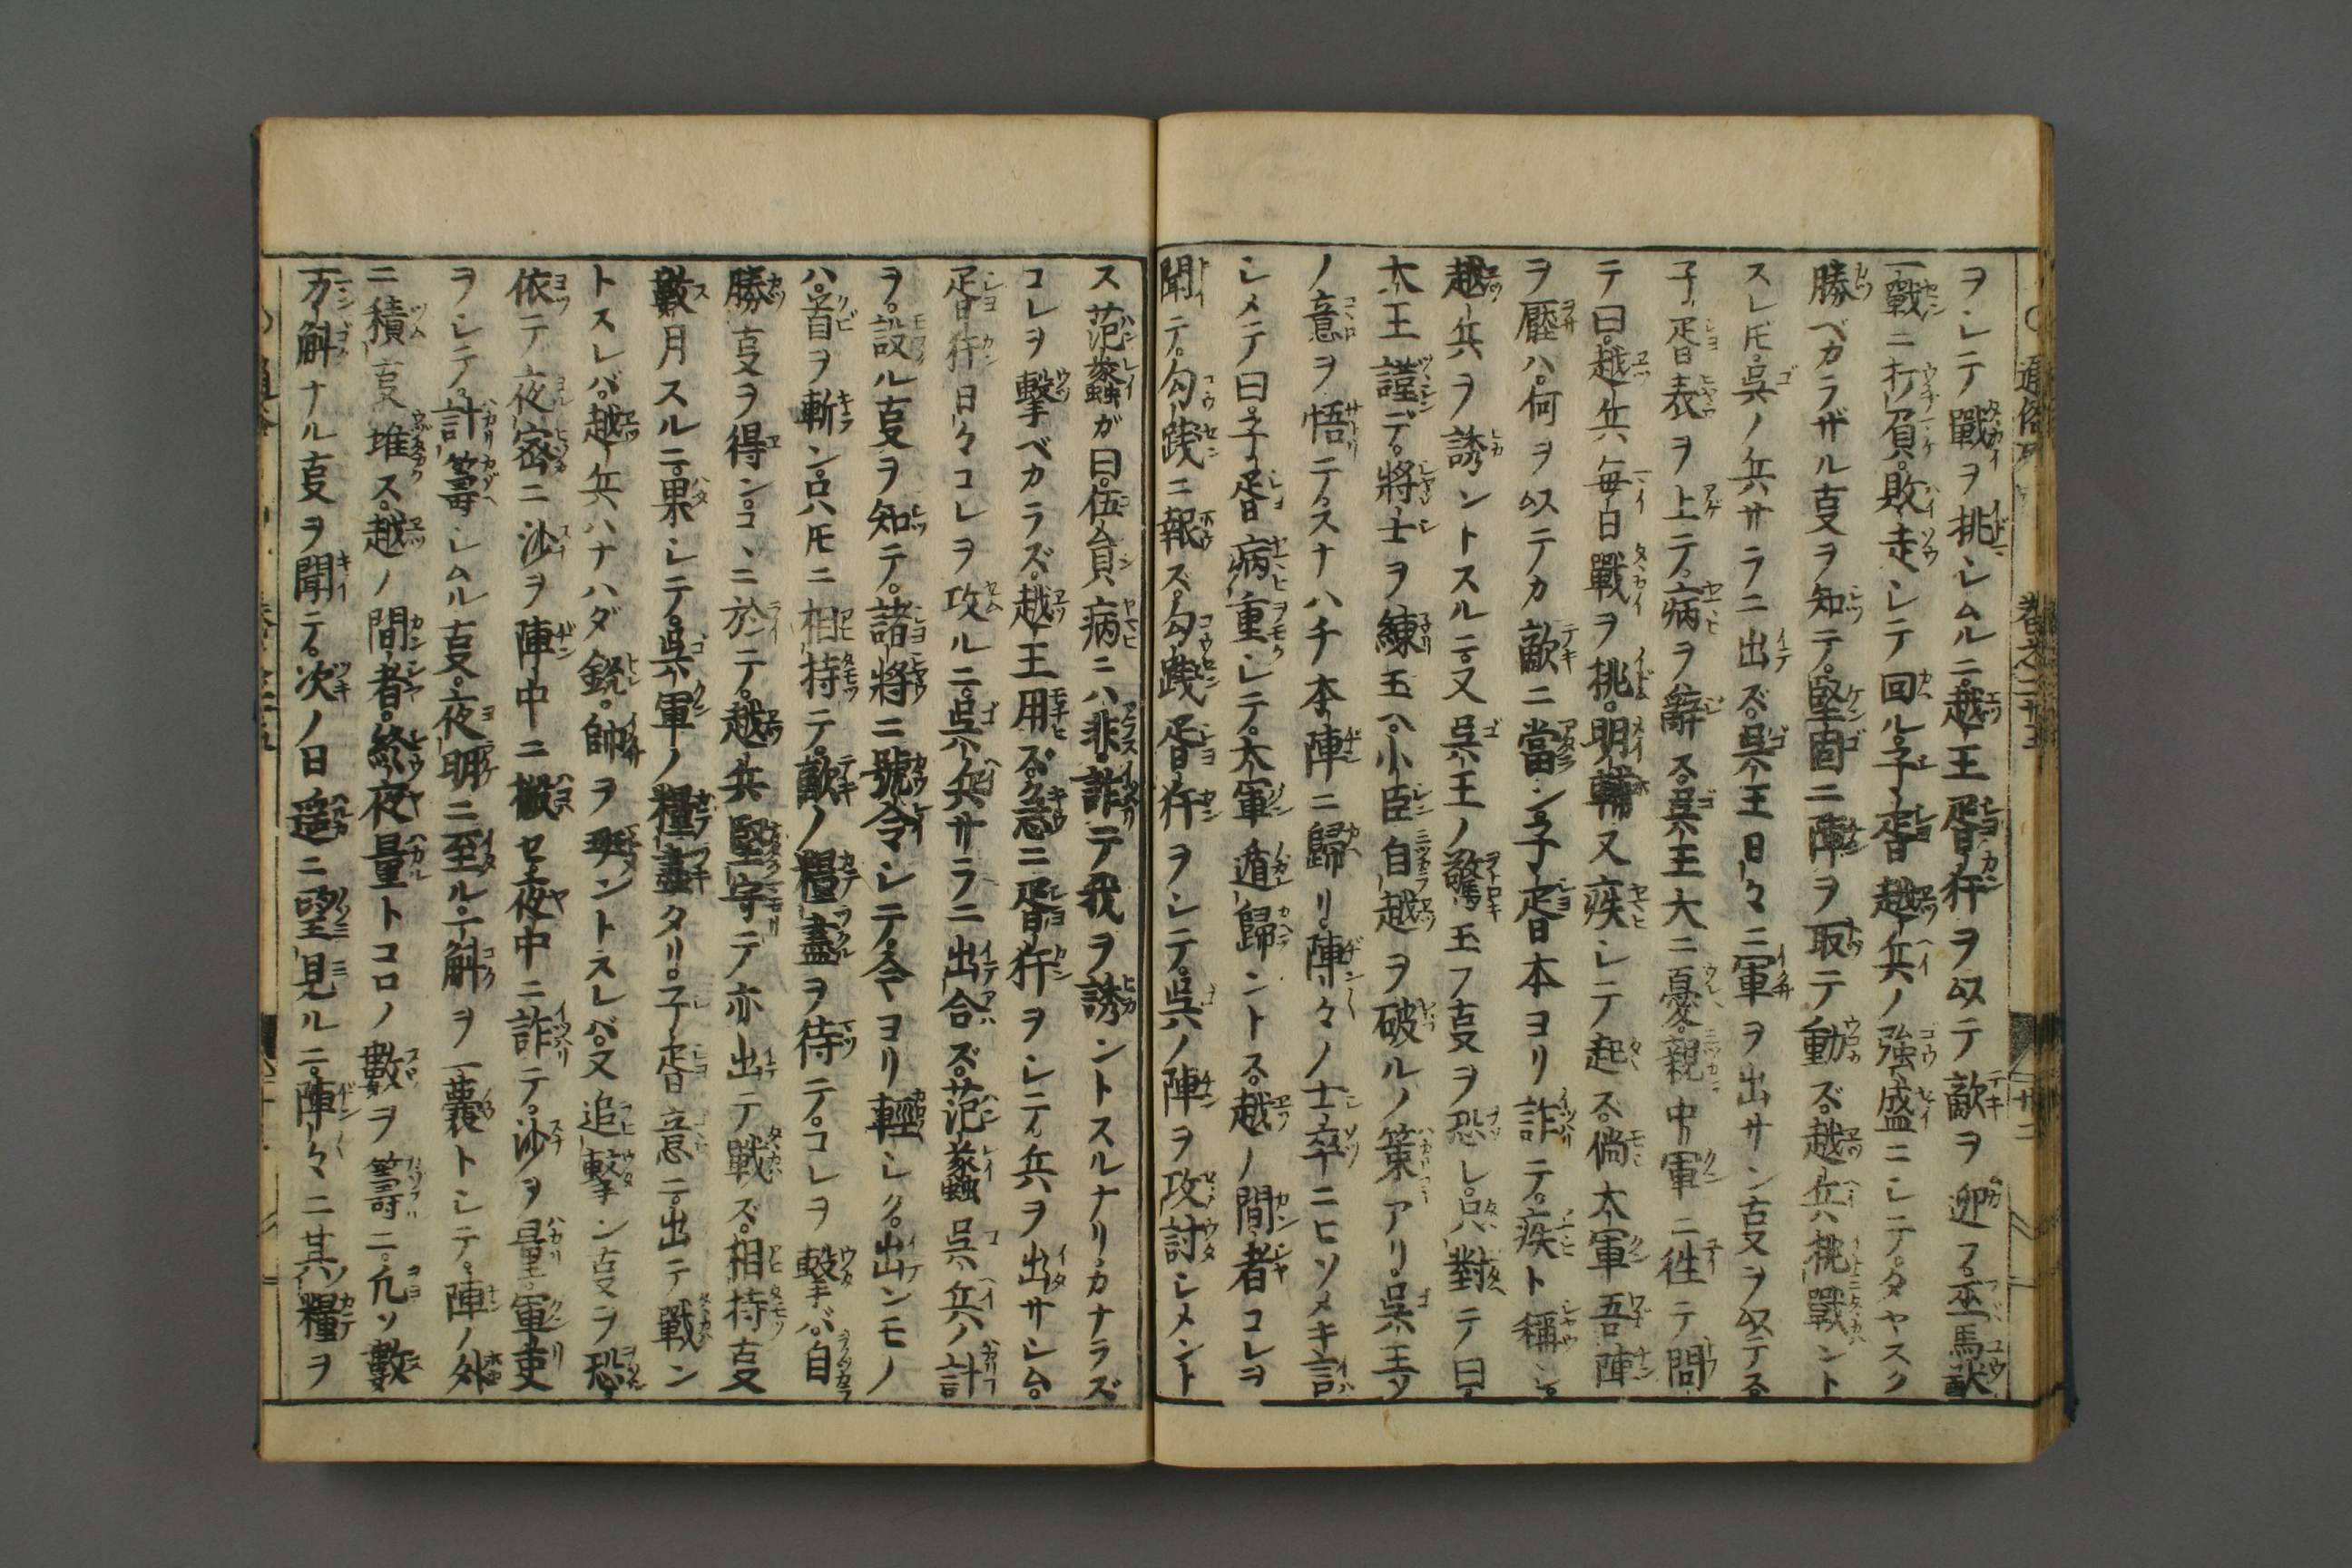 ヲシテ戰ヲ挑シムルニ越王胥犴ヲ以テ敵ヲ迎フ巫馬猷
一戰ニ打負敗走シテ回ル子胥越兵ノ強盛ニシテタヤスク
勝ベカラザル叓ヲ知テ堅固ニ陣ヲ取テ動ズ越兵挑戰ント
スレ𪜈呉ノ兵サラニ出ズ呉王日々ニ軍ヲ出サン叓ヲ以テス
子胥表ヲ上テ病ヲ辭ス呉王大ニ憂親中軍ニ徃テ問
テ曰越兵毎日戰ヲ挑明輔又疾シテ起ズ倘大軍吾陣
ヲ壓ハ何ヲ以テカ敵ニ當ン子胥本ヨリ詐テ疾ト稱シ
越兵ヲ誘ントスルニ又呉王ノ驚玉フ叓ヲ恐レ只對テ曰
大王謹デ將士ヲ練玉ヘ小臣自越ヲ破ルノ策アリ呉王ソ
ノ意ヲ悟テスナハチ本陣ニ歸リ陣々ノ士卒ニヒソメキ言
シメテ曰子胥病重シテ大軍遁歸ントス越ノ間者コレヲ
聞テ勾践ニ報ズ勾践胥犴ヲシテ呉ノ陣ヲ攻討シメント
ス范蠡が曰伍員病ニハ非詐テ我ヲ誘ントスルナリカナラズ
コレヲ擊ベカラズ越王用ズ急ニ胥犴ヲシテ兵ヲ出サシム
胥犴日々コレヲ攻ルニ呉兵サラニ出合ズ范蠡呉兵ノ計
ヲ設ル叓ヲ知テ諸將ニ號令シテ今ヨリ輕シク出ンモノ
ハ首ヲ斬ン只𪜈ニ相持テ敵ノ糧盡ヲ待テコレヲ擊バ自
勝叓ヲ得ンコヽニ於テ越兵堅守テ亦出テ戰ズ相持叓
數月スルニ果シテ呉軍ノ糧盡タリ子胥意ニ出テ戰ン
トスレバ越兵ハナハダ銳帥ヲ班ントスレバ又追擊ン叓ヲ恐
依テ夜密ニ沙ヲ陣中ニ搬セ夜中ニ詐テ沙ヲ量軍吏
ヲシテ計籌シムル叓夜明ニ至ル一斛ヲ一囊トシテ陣ノ外
ニ積叓堆ス越ノ間者終夜量トコロノ數ヲ籌ニ凡ソ數
万斛ナル叓ヲ聞テ次ノ日遙ニ望見ルニ陣々ニ其糧ヲ